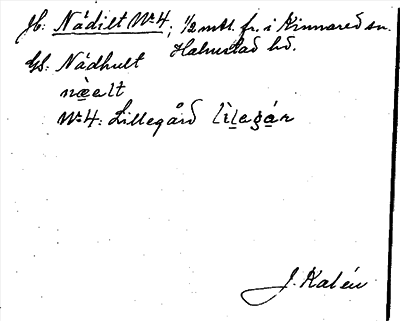 Jb: Nådilt No 4; 1/2 mtl. fr. i Kinnared sn.
Halmstad hd.
GS. Nådhult
nàelt
No 4: Lillegård lìlegár
J. Kalén